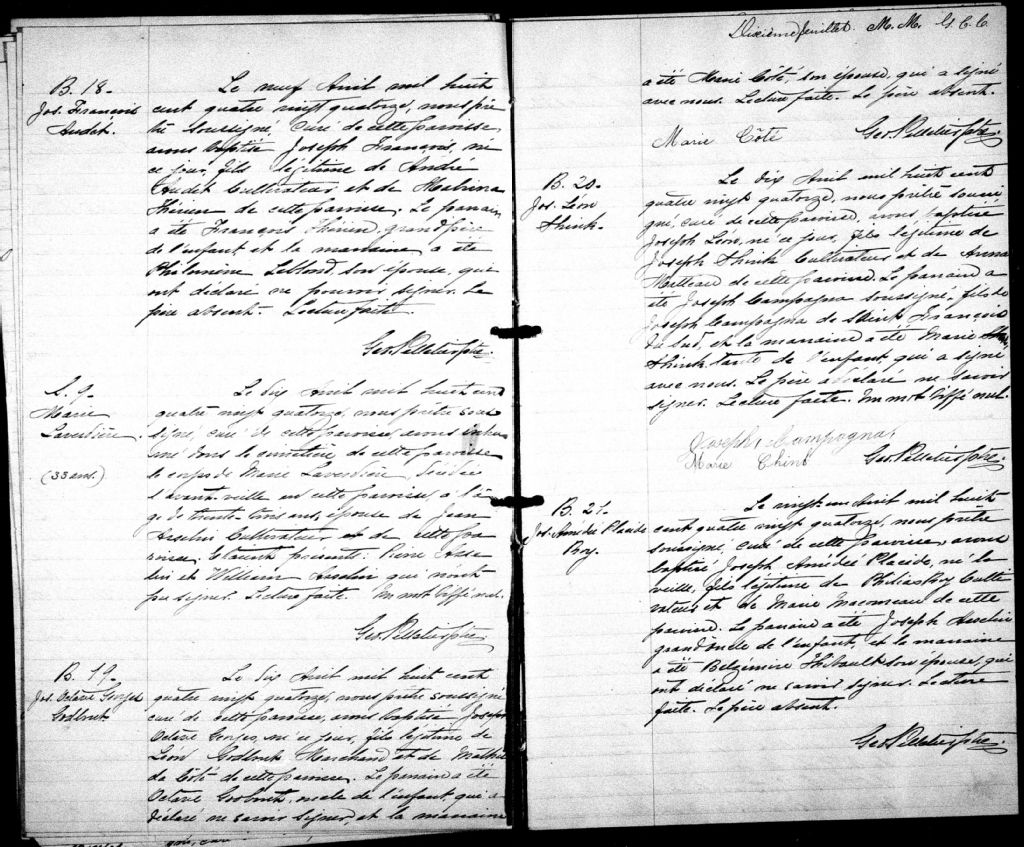 B. 18.
Jos. François
Audet.
Le neuf Avril mil huit
cent quatre vingt quatorze, nous prê
tre soussigné, curé de cette paroisse,
avons baptisé Joseph François, né
ce jour, fils légitime de André
Audet Cultivateur et de
de cette paroisse. Le parrain
a été François grand père
de l'enfant et la marraine a été
Philomène Leblond, son épouse, qui
ont déclaré ne pouvoir signer. Le
père absent. Lecture faite
Geo. Pelletier ptre.
S. 9.
Marie
Laverdière.
(33 ans.)
Le dix Avril mil huit cent
quatre vingt quatorze, nous prêtre sous
signé, curé de cette paroisse, avons inhu
mé dans le cimetière de cette paroisse
le corps de Marie Laverdière, décédée
l'avant-veille en cette paroisse, à l'â
ge de trente trois ans, épouse de Jean
Asselin Cultivateur, et de cette pa
roisse. Etaient présents: Pierre Asse
lin et William Asselin qui n'ont
pu signer. Lecture faite. Un mot biffé nul.
Geo. Pelletier ptre.
B. 19.
Jos. Octave Georges
Godbout
Le dix Avril mil huit cent
quatre vingt quatorze, nous prêtre soussigné
curé de cette paroisse, avons baptisé Joseph
Octave Georges, né ce jour, fils légitime de
Léon Godbout Marchand et de
de Côté de cette paroisse. Le parrain a été
Octave Godbout, oncle de l'enfant, qui a
déclaré ne savoir signer, et la marraine
Dixième feuillet. M. M. G. C. C.
a été Marie Côté, son épouse, qui a signé
avec nous. Lecture faite. Le père absent.
Marie Côté Geo. Pelletier ptre.
B. 20.
Jos. Léon
Think.
Le dix Avril mil huit cent
quatre vingt quatorze, nous prêtre soussi
gné, curé de cette paroisse, avons baptisé
Joseph Léon, né ce jour, fils légitime de
Joseph Think Cultivateur et de Anna
de cette paroisse. Le parrain a
été Joseph Campagna soussigné, fils de
Joseph Campagna de Saint François
du Sud, et la marraine a été Marie
Think tante de l'enfant qui a signé
avec nous. Le père a déclaré ne savoir
signer. Lecture faite. Un mot biffé nul.
Joseph Campagna,
Marie Chint Geo. Pelletier ptre.
B. 21.
Jos. Amédée Placide
Roy.
Le vingt-un Avril mil huit
cent quatre vingt quatorze, nous prêtre
soussigné, curé de cette paroisse, avons
baptisé Joseph Amédée Placide, né la
veille, fils légitime de Philias Roy Culti
vateur et de Marie de cette
paroisse. Le parrain a été Joseph Asselin
grand oncle de l'enfant, et la marraine
a été Belzemire Thibault son épouse, qui
ont déclaré ne savoir signer. Lecture
faite. Le père absent.
Geo. Pelletier ptre.